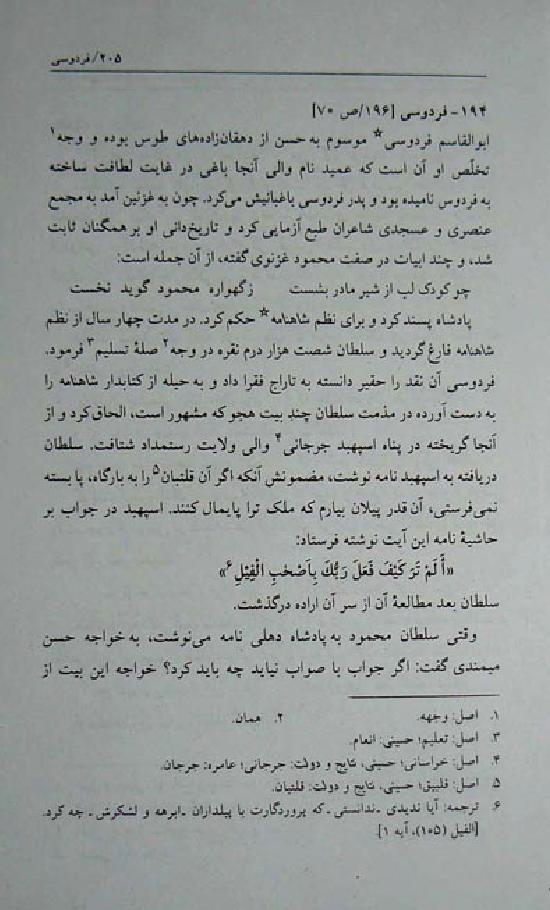 ۲۰۵/فردوسی
۱۹۴- فردوسی [۱۹۶/ص ۷۰]
ابوالقاسم فردوسی* موسوم به حسن از دهقان‌زاده‌های طوس بوده و وجه۱
تخلّص او آن است که عمید نام والی آنجا باغی در غایت لطافت ساخته
به فردوس نامیده بود و پدر فردوسی باغبانیش می‌کرد. چون به غزنین آمد به مجمع
عنصری و عسجدی شاعران طبع آزمایی کرد و تاریخ‌دانی او بر همگنان ثابت
شد، و چند ابیات در صفت محمود غزنوی گفته، از آن جمله است:
چو کودک لب از شیر مادر بشست زگهواره محمود گوید نخست
پادشاه پسند کرد و برای نظم شاهنامه* حکم کرد. در مدت چهار سال از نظم
شاهنامه فارغ گردید و سلطان شصت هزار درم نقره در وجه۲ صلهٔ تسلیم۳ فرمود.
فردوسی آن نقد را حقیر دانسته به تاراج فقرا داد و به حیله از کتابدار شاهنامه را
به دست آورده در مذمت سلطان چند بیت هجو که مشهور است، الحاق کرد و از
آنجا گریخته در پناه اسپهبد جرجانی۴ والی ولایت رستمداد شتافت. سلطان
دریافته به اسپهبد نامه نوشت، مضمونش آنکه اگر آن قلتبان۵ را به بارگاه، پا بسته
نمی‌فرستی، آن قدر پیلان بیارم که ملک ترا پایمال کنند. اسپهبد در جواب بر
حاشیهٔ نامه این آیت نوشته فرستاد:
«أَلَمْ تَرَ كَيْفَ فَعَلَ رَبُّكَ بِاَصْحٰبِ الْفِيْلِ۶»
سلطان بعد مطالعهٔ آن از سر آن اراده درگذشت.
وقتی سلطان محمود به پادشاه دهلی نامه می‌نوشت، به خواجه حسن
میمندی گفت: اگر جواب با صواب نیاید چه باید کرد؟ خواجه این بیت از
۱. اصل: وجهه. ۲. همان.
۳. اصل: تعلیم؛ حسینی: انعام.
۴. اصل: خراسانی؛ حسینی، نتایج و دولت: جرجانی؛ عامره: جرجان.
۵. اصل: قلیبق؛ حسینی، نتایج و دولت: قلتبان.
۶. ترجمه: آیا ندیدی ـ ندانستی ـ که پروردگارت با پیلداران ـ ابرهه و لشکرش ـ چه کرد.
[الفیل (۱۰۵)، آیه ۱].